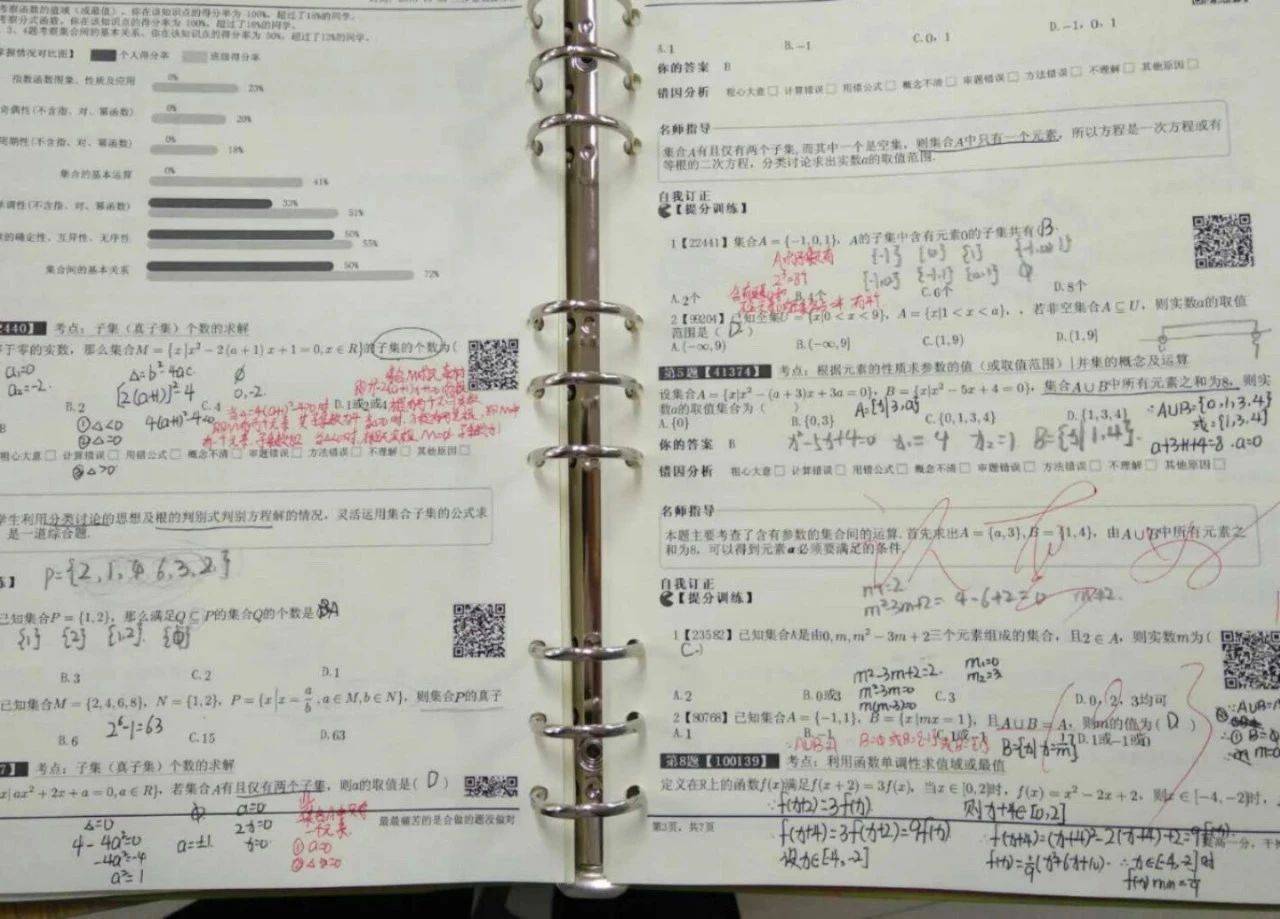 考察函数的值域（或最值），你在该知识点的得分率为 100%，超过了18%的同学。
考察分式函数，你在该知识点的得分率为 100%，超过了18%的同学。
3、4题考察集合间的基本关系，你在该知识点的得分率为 50%，超过了12%的同学。
掌握情况对比图】 个人得分率 班级得分率
指数函数图象、性质及应用 0% 23%
奇偶性(不含指、对、幂函数) 0% 20%
周期性(不含指、对、幂函数) 0% 18%
集合的基本运算 0% 41%
单调性(不含指、对、幂函数) 33% 51%
的确定性、互异性、无序性 50% 55%
集合间的基本关系 50% 72%
2440】 考点：子集（真子集）个数的求解
于零的实数，那么集合M = {x|x² − 2(a + 1)x + 1 = 0, x ∈ R}的子集的个数为(
a₁=0 Δ=b²-4ac ∅
a₂=-2. [2(a+1)]²-4 0,-2.
B. 2 C. 4 D. 1或2或4
①Δ<0 4(a+1)²-4
②Δ=0
B
粗心大意□ 计算错误□ 用错公式□ 概念不清□ 审题错误□ 方法错误□ 不理解□ 其他原因□
③Δ>0
学生利用分类讨论的思想及根的判别式判别方程解的情况，灵活运用集合子集的公式求
是一道综合题.
P={2,1,4,6,3,2}
已知集合P = {1,2}，那么满足Q ⊆ P的集合Q的个数是 A
{1} {2} {1,2} {∅}
B. 3 C. 2 D. 1
已知集合M = {2,4,6,8}，N = {1,2}，P = {x|x = a/b, a ∈ M, b ∈ N}，则集合P的真子
2⁶-1=63
B. 6 C. 15 D. 63
7】 考点：子集（真子集）个数的求解
x|ax² + 2x + a = 0, a ∈ R}，若集合A有且仅有两个子集，则a的取值是( D )
Δ=0 a=0
4-4a²=0 a=±1. 2x=0
-4a²=-4 x=0.
a²=1
一个元素.
①a=0
②Δ=0
最最痛苦的是会做的题没做对
A. 1 B. −1 C. 0，1 D. −1，0，1
你的答案 B
错因分析 粗心大意□ 计算错误□ 用错公式□ 概念不清□ 审题错误□ 方法错误□ 不理解□ 其他原因□
名师指导
集合A有且仅有两个子集,而其中一个是空集，则集合A中只有一个元素，所以方程是一次方程或有
等根的二次方程，分类讨论求出实数a的取值范围.
自我订正
【提分训练】
1【22441】集合A = {−1,0,1}，A的子集中含有元素0的子集共有 B
A的子集共有 {-1} {0} {1} {-1,0,1}
2³=8个 {-1,0} {-1,1} {0,1} ∅
A. 2个 B. 4个 C. 6个 D. 8个
2【99204】已知全集U = {x|0 < x < 9}，A = {x|1 < x < a}，，若非空集合A ⊆ U，则实数a的取值
范围是 ( D )
A. (−∞, 9) B. (−∞, 9] C. (1,9) D. (1,9]
第5题【41374】 考点：根据元素的性质求参数的值（或取值范围）|并集的概念及运算
设集合A = {x|x² − (a + 3)x + 3a = 0}，B = {x|x² − 5x + 4 = 0}，集合A∪B中所有元素之和为8，则实
数a的取值集合为 ( ) A={x|3,a}
A. {0} B. {0,3} C. {0,1,3,4} D. {1,3,4} ∴A∪B={0,1,3,4}
或={1,3,4}
你的答案 B x²-5x+4=0 x₁=4 x₂=1 B={x|1,4}. a+3+1+4=8 ∴a=0
错因分析 粗心大意□ 计算错误□ 用错公式□ 概念不清□ 审题错误□ 方法错误□ 不理解□ 其他原因□
名师指导
本题主要考查了含有参数的集合间的运算. 首先求出A = {a, 3}, B = {1,4}，由A∪B中所有元素之
和为8，可以得到元素a必须要满足的条件.
自我订正 m=2
【提分训练】 m²-3m+2=4-6+2=0
1【23582】已知集合A是由0, m, m² − 3m + 2三个元素组成的集合，且2 ∈ A，则实数m为(
C
m²-3m+2=2. m₁=0
m²-3m=0 m₂=3
m(m-3)=0
A. 2 B. 0或3 C. 3 D. 0，2，3均可
2【80768】已知集合A = {−1,1}，B = {x|mx = 1}，且A∪B = A，则m的值为( D )
A. 1 B. −1 C. 1或−1 D. 1或−1或0
B={x|x=1/m}
第8题【100139】 考点：利用函数单调性求值域或最值
定义在R上的函数f(x)满足f(x + 2) = 3f(x)，当x ∈ [0,2]时，f(x) = x² − 2x + 2，则x ∈ [−4, −2]时，
∵f(x+2)=3f(x). 则x+4∈[0,2]
f(x+4)=3f(x+2)=9f(x) ∴f(x+4)=(x+4)²-2(x+4)+2=9f(x).
设x∈[-4,-2] f(x)=1/9(x²+6x+10). ∴x∈[-4,-2]时
第3页，共7页